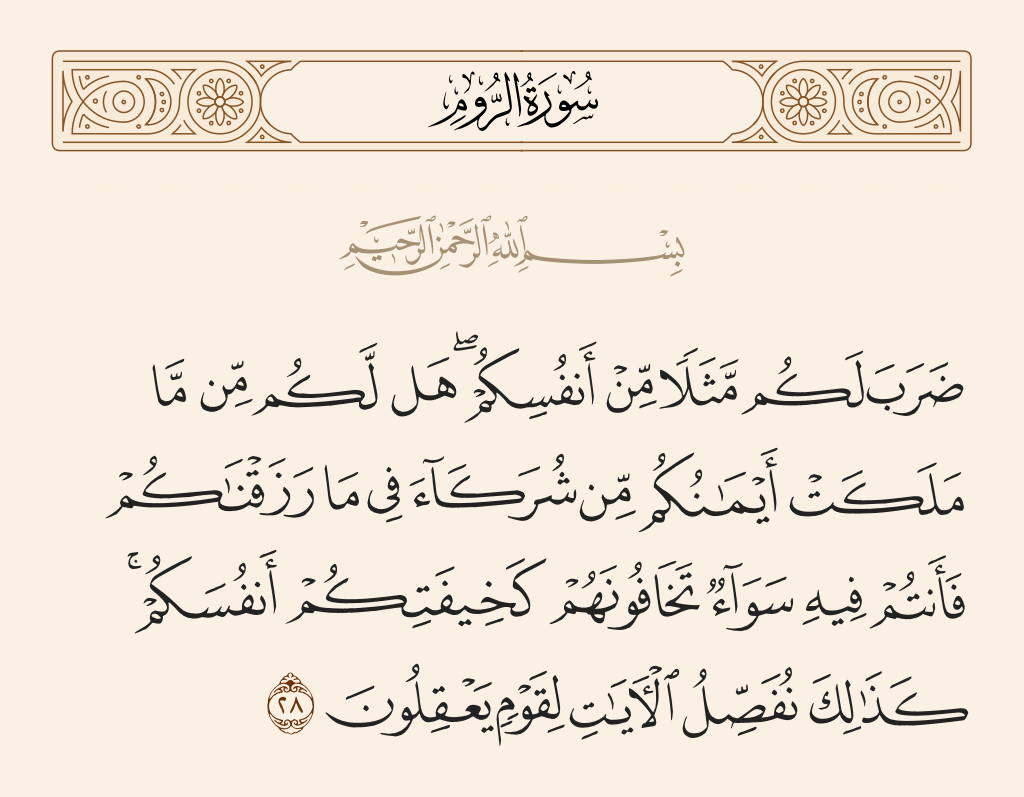 سُورَةُ الرُّومِ
بِسْمِ ٱللَّهِ ٱلرَّحْمَٰنِ ٱلرَّحِيمِ
ضَرَبَ لَكُم مَّثَلًا مِّنْ أَنفُسِكُمْ ۖ هَل لَّكُم مِّن مَّا
مَلَكَتْ أَيْمَـٰنُكُم مِّن شُرَكَآءَ فِى مَا رَزَقْنَـٰكُمْ
فَأَنتُمْ فِيهِ سَوَآءٌ تَخَافُونَهُمْ كَخِيفَتِكُمْ أَنفُسَكُمْ ۚ
كَذَٰلِكَ نُفَصِّلُ ٱلْـَٔايَـٰتِ لِقَوْمٍ يَعْقِلُونَ ٢٨